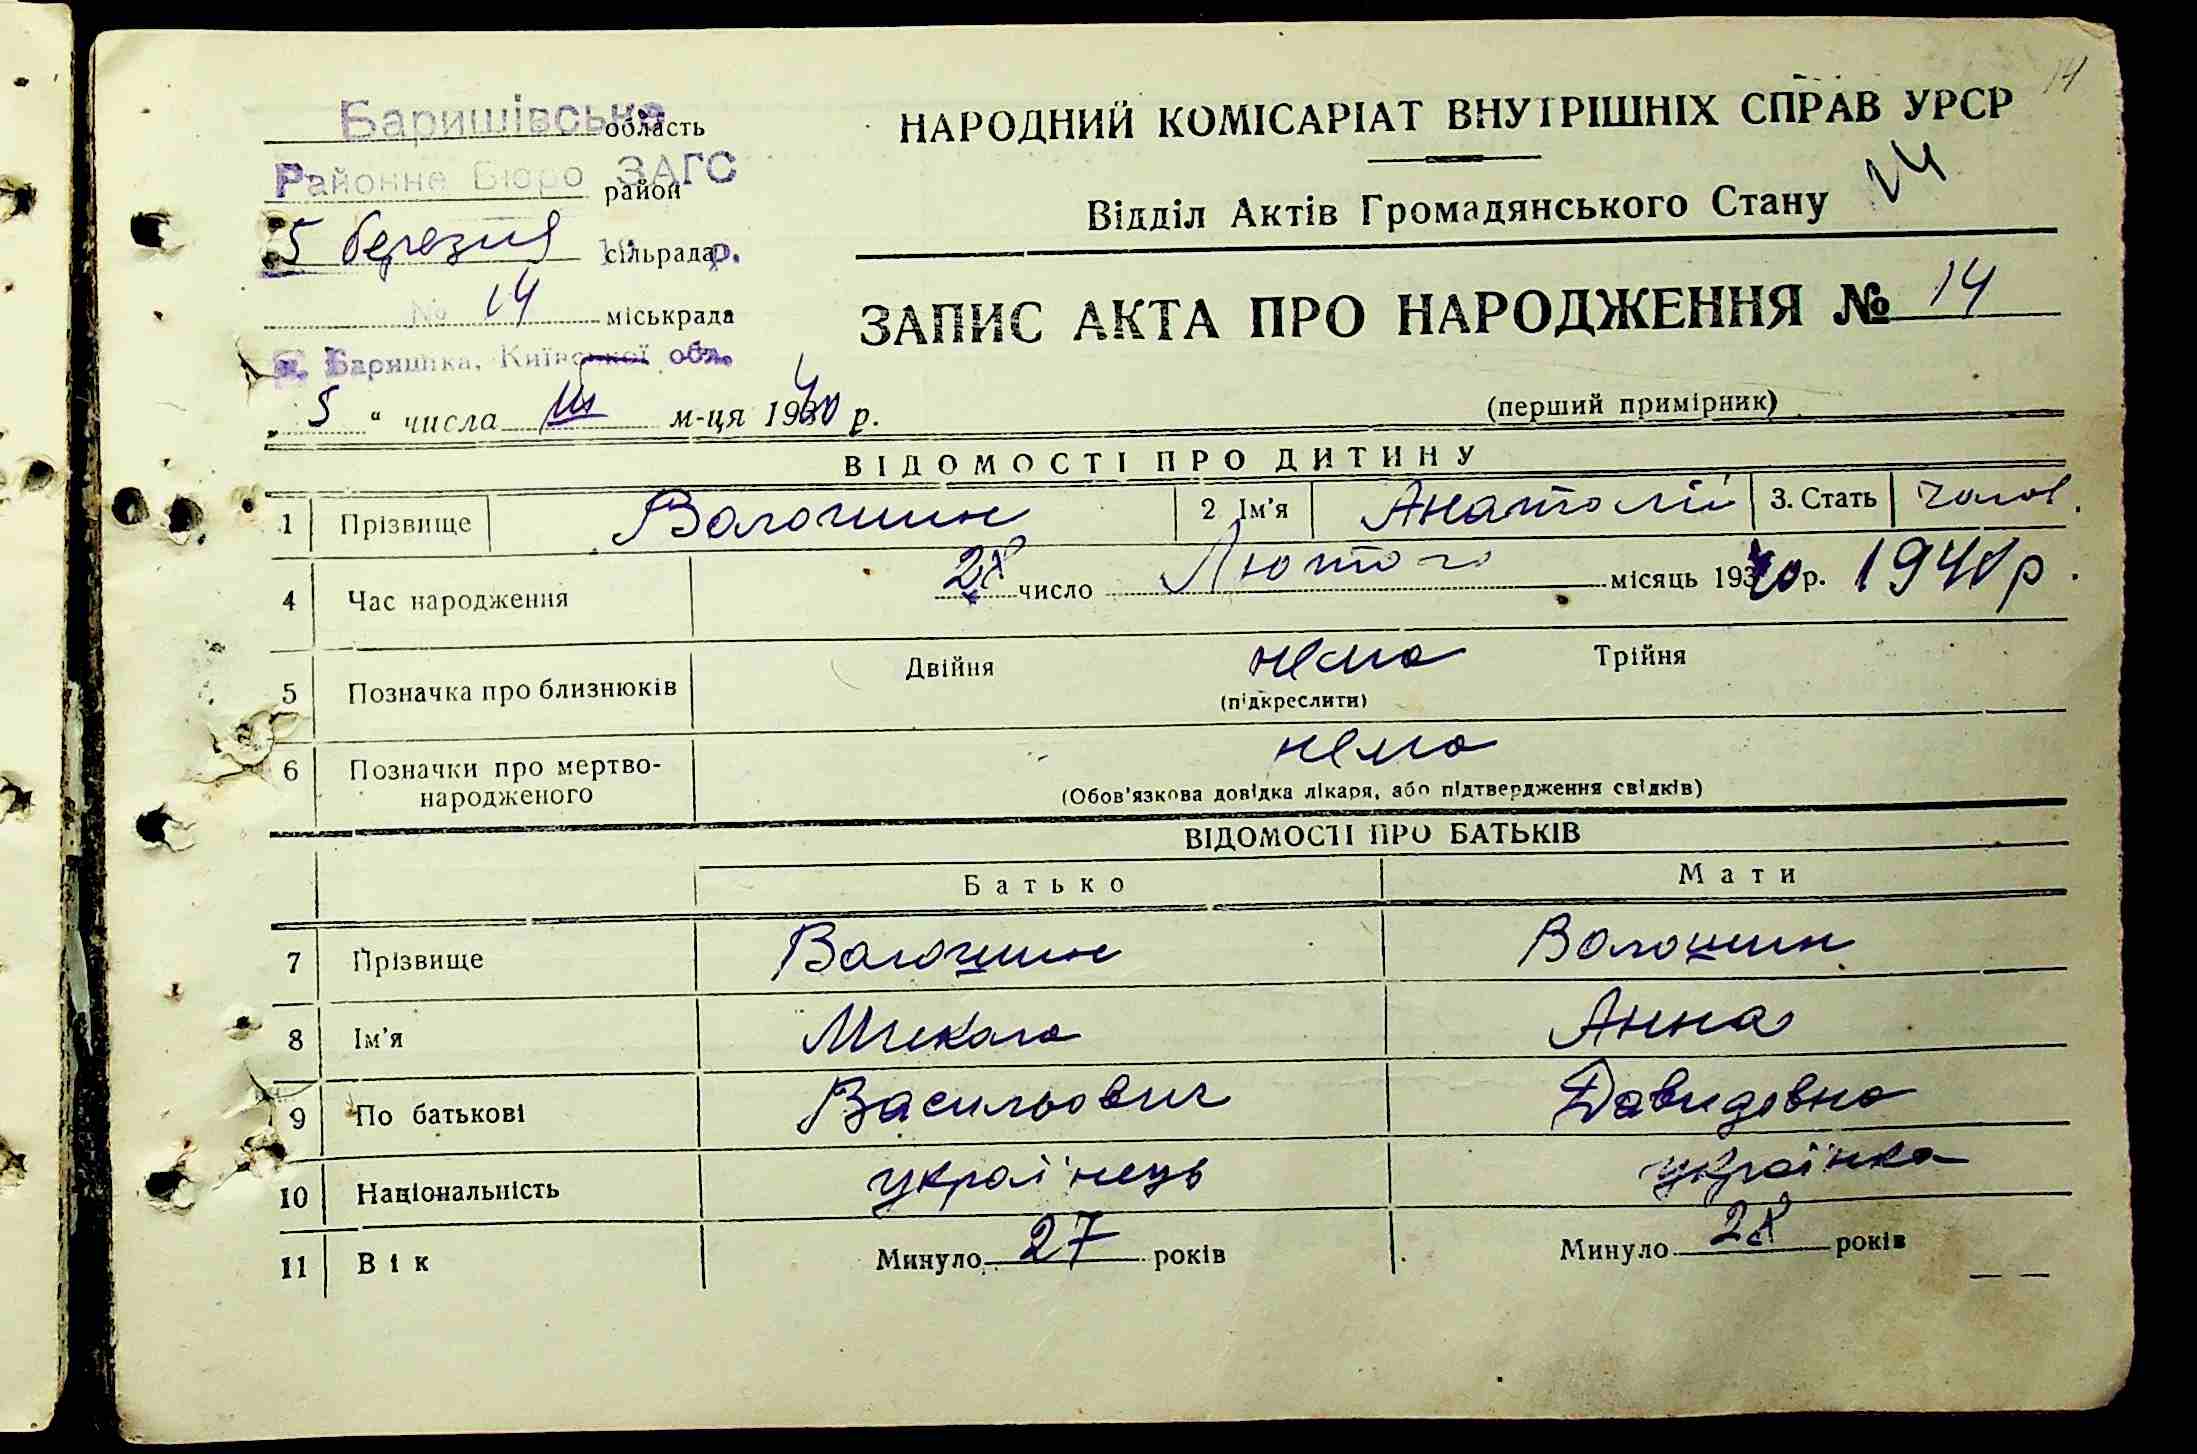 14
Баришівське область
Районне Бюро ЗАГС район
5 березня сільрада р.
№ 14 міськрада
Баришівка, Київської обл.
„ 5 “ числа III м-ця 1940 р.
НАРОДНИЙ КОМІСАРІАТ ВНУТРІШНІХ СПРАВ УРСР
Відділ Актів Громадянського Стану 14
ЗАПИС АКТА ПРО НАРОДЖЕННЯ № 14
(перший примірник)
ВІДОМОСТІ ПРО ДИТИНУ
1 Прізвище Волошин 2 Ім'я Анатолій 3. Стать чолов.
4 Час народження 28 число Лютого місяць 1940 р. 1940 р.
5 Позначка про близнюків Двійня нема Трійня
(підкреслити)
6 Позначки про мертво- нема
народженого (Обов'язкова довідка лікаря, або підтвердження свідків)
ВІДОМОСТІ ПРО БАТЬКІВ
Батько Мати
7 Прізвище Волошин Волошин
8 Ім'я Микола Анна
9 По батькові Васильович Давидовна
10 Національність українець українка
11 Вік Минуло 27 років Минуло 28 років